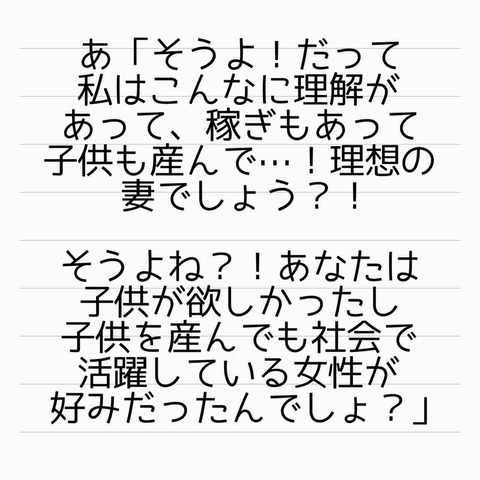 あ「そうよ！だって
私はこんなに理解が
あって、稼ぎもあって
子供も産んで…！理想の
妻でしょう？！
そうよね？！あなたは
子供が欲しかったし
子供を産んでも社会で
活躍している女性が
好みだったんでしょ？」